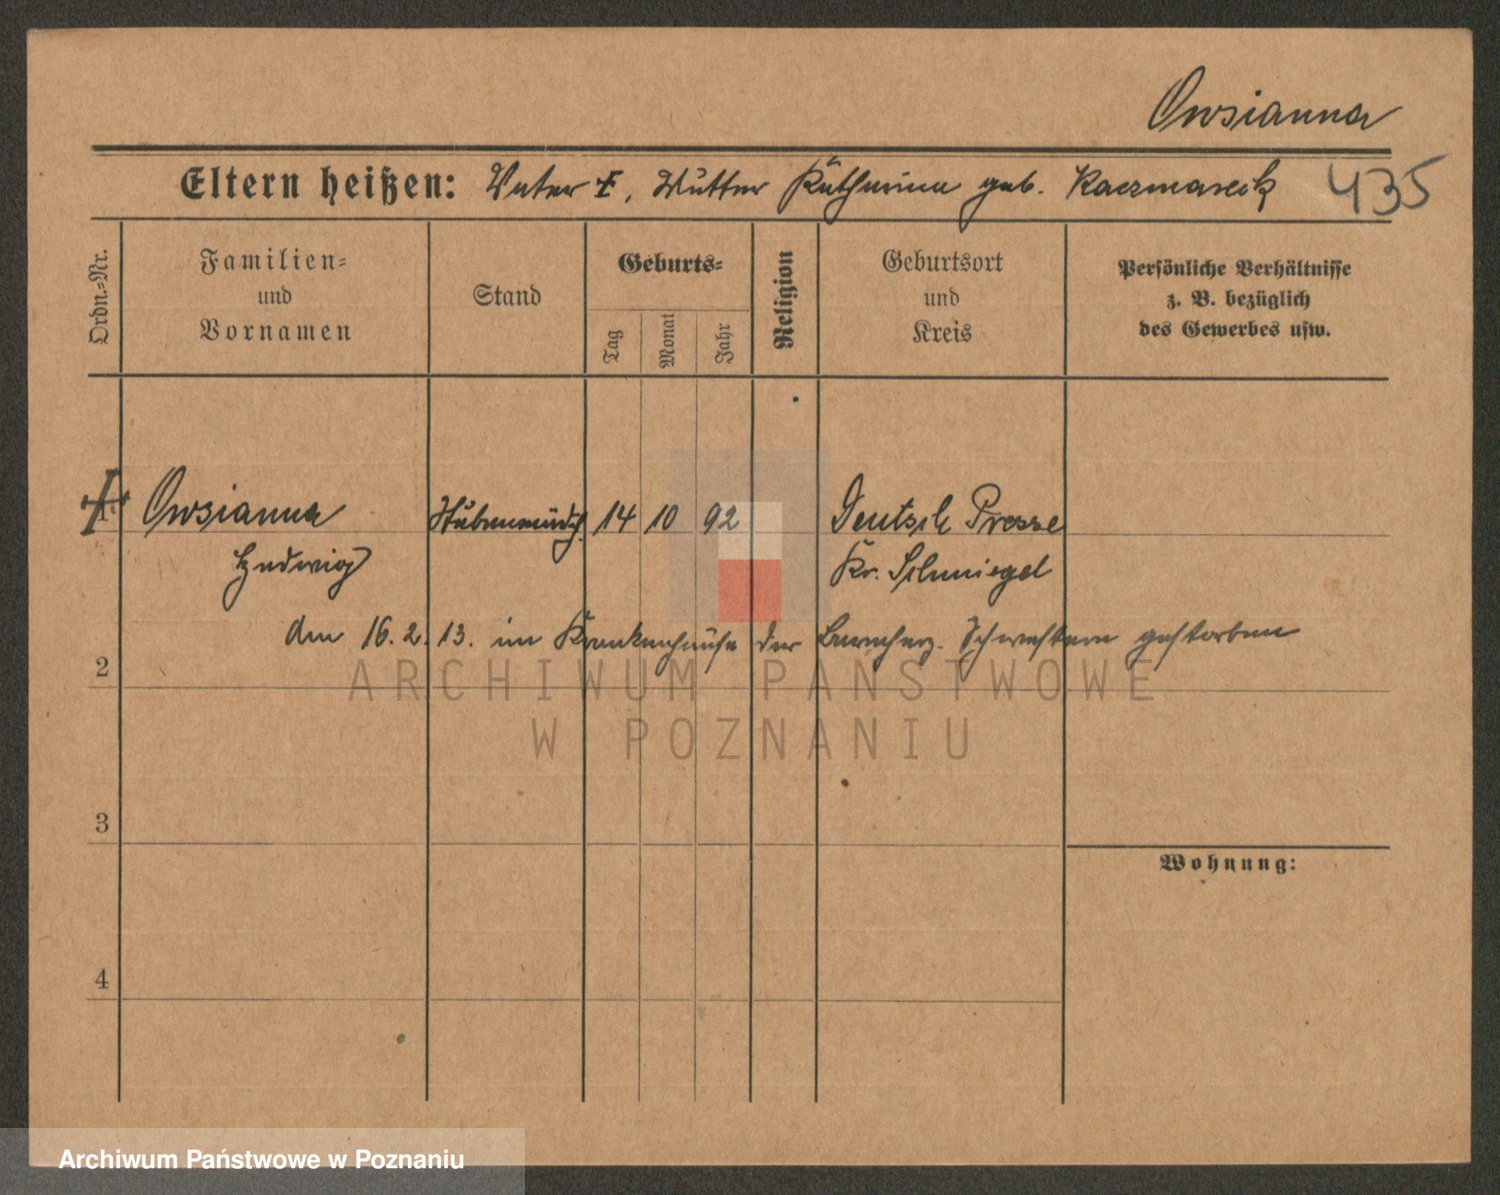 Owsianna
Eltern heißen: Vater †, Mutter Katharina geb. Kaczmareck 435
Ordn.-Nr.
Familien-
und
Vornamen
Stand
Geburts-
Tag
Monat
Jahr
Religion
Geburtsort
und
Kreis
Persönliche Verhältnisse
z. B. bezüglich
des Gewerbes usw.
Owsianna Stubenmädch. 14 10 92 Deutsch Presse
Hedwig Kr. Schmiegel
den 16. 2. 13. im Krankenhause der Barmherz. Schwestern gestorben
2
3
4
Wohnung:
ARCHIWUM PAŃSTWOWE
W POZNANIU
Archiwum Państwowe w Poznaniu